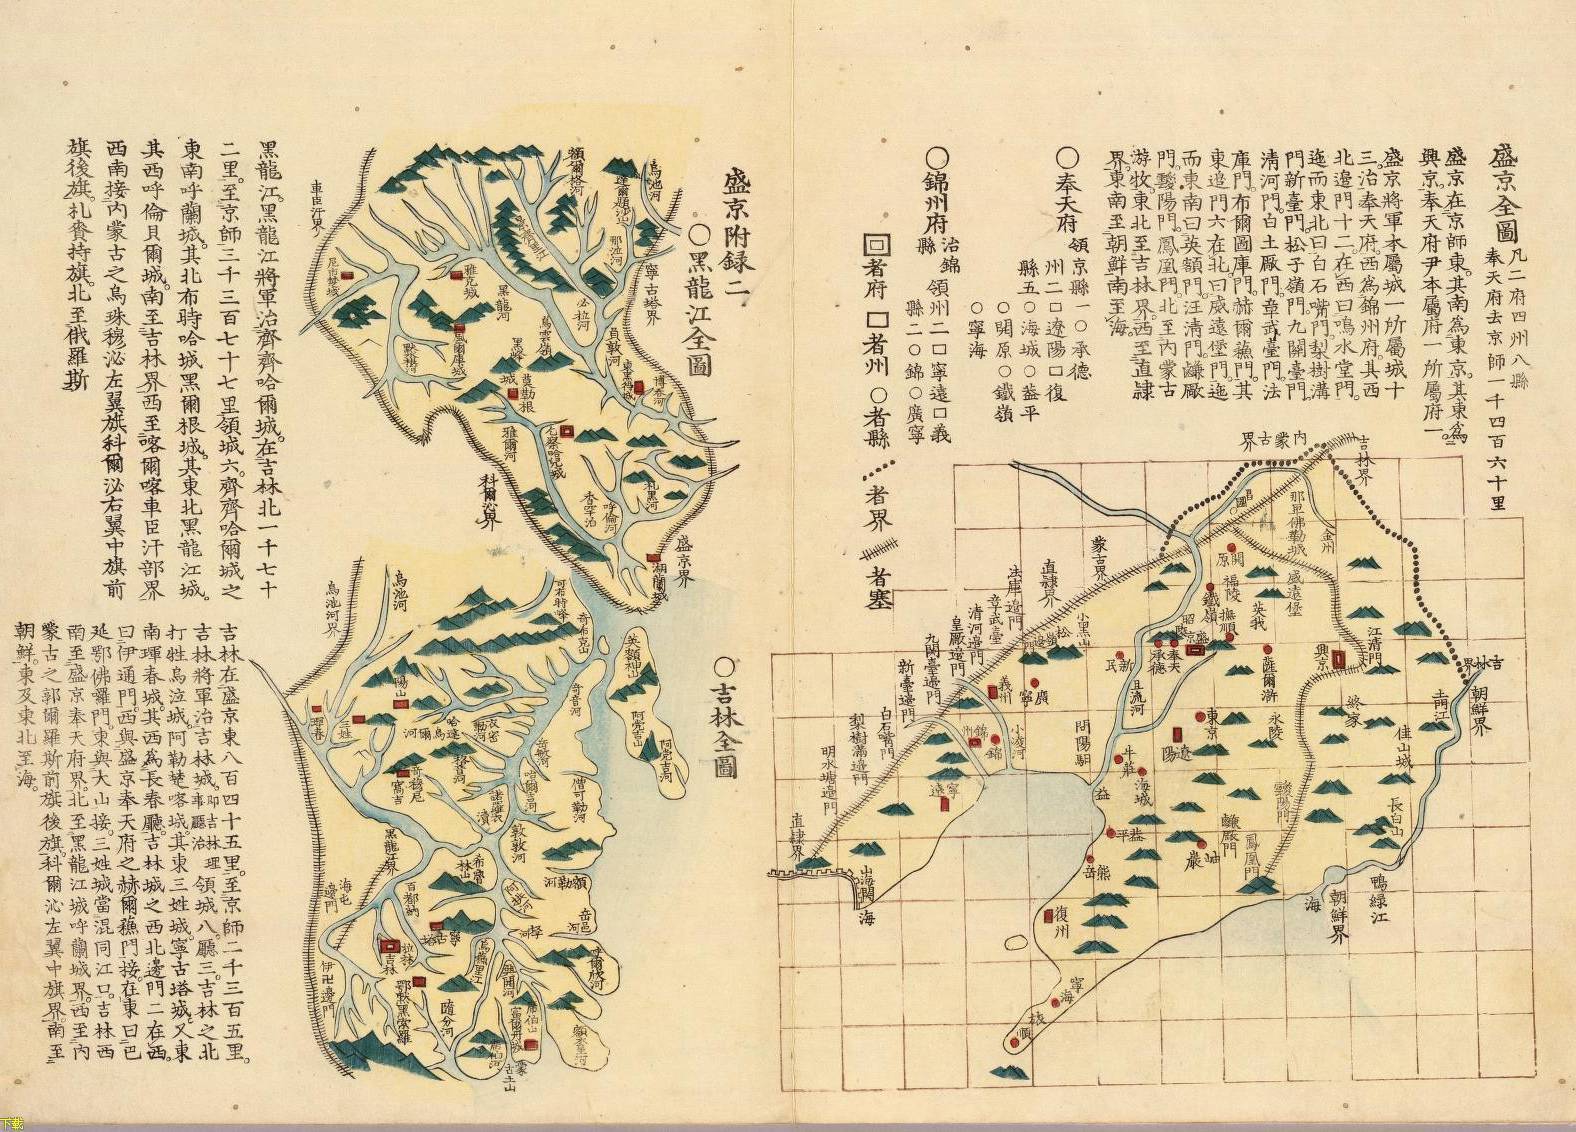 盛京全圖
凡二府四州八縣
奉天府去京師一千四百六十里
盛京在京師東其南為東京其東為
興京奉天府尹本屬府一所屬府一
盛京將軍本屬城一所屬城十
三治奉天府西為錦州府其西
北邊門十二在西曰鳴水堂門
迤而東北曰白石嘴門梨樹溝
門新臺門松子嶺門九關臺門
清河門白土厰門章武臺門法
庫門布爾圖庫門赫爾蘓門其
東邊門六在北曰威遠堡門迤
而東南曰英額門汪清門鹻厰
門靉陽門鳳凰門北至內蒙古
游牧東北至吉林界西至直隸
界東南至朝鮮南至海
〇奉天府
領京縣一〇承德
州二□遼陽□復
縣五〇海城〇盖平
〇開原〇鐵嶺
〇寧海
〇錦州府
治錦縣
領州二□寧遠□義
縣二〇錦〇廣寧
回者府□者州〇者縣
者界
者塞
內蒙古界
吉林界
蒙古界
直隸界
法庫邊門
章武臺
清河邊門
九関臺邊門
新臺邊門
白石嘴門
梨樹溝邊門
明水塘邊門
直隸界
山海関
海
小黑山
開原
鐵嶺
撫順
福陵
英我
威遠堡
那里佛勒城
金州
盛京
奉天
承德
新民
興京
薩爾滸
江清門
東京
遼陽
永陵
巨流河
閭陽馹
廣寧
義州
錦州
錦
小凌河
寧遠
牛莊
海城
盖平
熊岳
岫巖
鳳凰門
鹻厰門
靉陽門
復州
寧海
旅順
佳山城
長白山
鴨綠江
朝鮮界
海
土門江
朝鮮界
吉林界
盛京附録二
〇黑龍江全圖
烏池河
額爾格河
寧古塔界
車臣汗界
雅克城
黑龍河
必拉河
博春河
墨勒根城
雅爾河
科爾沁界
呼倫河
札黑河
盛京界
湖蘭城
黑龍江黑龍江將軍治齊齊哈爾城在吉林北一千七十
二里至京師三千三百七十七里領城六齊齊哈爾城之
東南呼蘭城其北布時哈城黑爾根城其東北黑龍江城
其西呼倫貝爾城南至吉林界西至喀爾喀車臣汗部界
西南接內蒙古之烏珠穆沁左翼旗科爾沁右翼中旗前
旗後旗札賚持旗北至俄羅斯
〇吉林全圖
烏池河
烏池河界
奇布克山
英額神山
阿党吉山
阿党吉河
奇音河
琿春
三姓
黑龍江界
敦敦河
僧可勤河
海屯邊門
伊屯邊門
吉林
拉林
寧古塔
鄂黙黑索羅
隨分河
蒙古土山
吉林在盛京東八百四十五里至京師二千三百五里
吉林將軍治吉林城即吉林理事廳治領城八廳三吉林之北
打牲烏泣城阿勒楚喀城其東三姓城寧古塔城又東
南琿春城其西為長春廳吉林城之西北邊門二在西
曰伊通門西與盛京奉天府之赫爾蘓門接在東曰巴
延鄂佛囉門東與大山接三姓城當混同江口吉林西
南至盛京奉天府界北至黑龍江城呼蘭城界西至內
蒙古之郭爾羅斯前旗後旗科爾沁左翼中旗界南至
朝鮮東及東北至海
下載